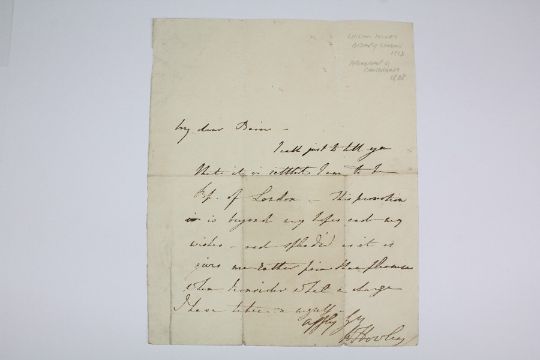 William Howley
Bishop of London
1813
Archbishop of
Canterbury
1828
My dear Baron –
I call just to tell you
that it is settled, I am to be
Bp. of London – This promotion
is beyond my hopes and my
wishes – and splendid as it is
gives me rather pain than pleasure
when I consider what a charge
I have taken on myself
W Howley